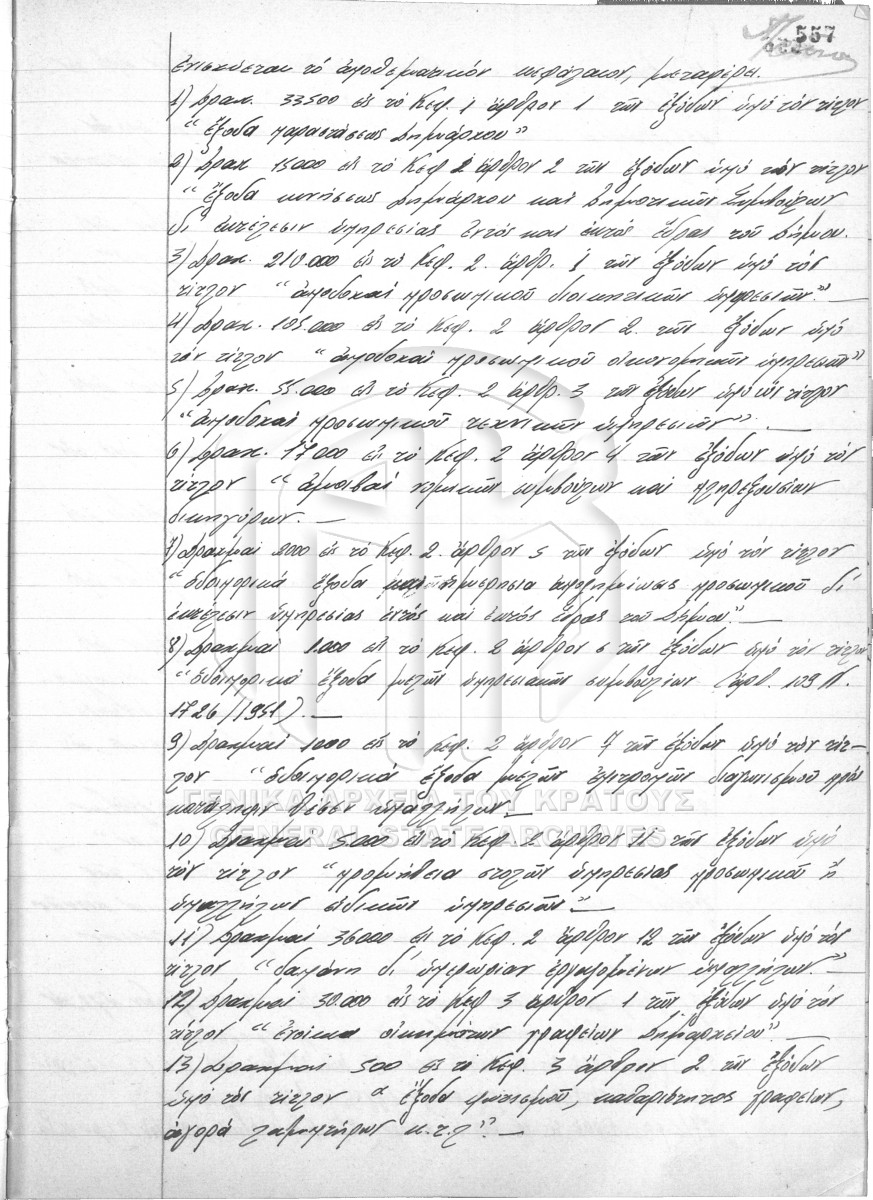 557
ἐνισχύεται τό ἀποθεματικόν κεφάλαιον, μεταφέρει.
1) Δραχ. 33500 εἰς τό Κεφ. 1 ἄρθρον 1 τῶν ἐξόδων ὑπό τόν τίτλον
"ἔξοδα παραστάσεως Δημάρχου"
2) Δραχ 15000 εἰς τό Κεφ 2 ἄρθρον 2 τῶν ἐξόδων ὑπό τόν τίτλον
"ἔξοδα κινήσεως Δημάρχου καί Δημοτικῶν Συμβούλων
δι' ἐκτέλεσιν ὑπηρεσίας ἐντός καί ἐκτός ἕδρας τοῦ Δήμου.
3) Δραχ. 210.000 εἰς τό Κεφ. 2. ἄρθρ. 1 τῶν ἐξόδων ὑπό τόν
τίτλον "ἀποδοχαί προσωπικοῦ διοικητικῶν ὑπηρεσιῶν". —
4) Δραχ. 105.000 εἰς τό Κεφ. 2 ἄρθρον 2. τῶν ἐξόδων ὑπό
τόν τίτλον "ἀποδοχαί προσωπικοῦ οἰκονομικῶν ὑπηρεσιῶν"
5) Δραχ. 55.000 εἰς τό Κεφ. 2 ἄρθρ. 3 τῶν ἐξόδων ὑπό τόν τίτλον
"ἀποδοχαί προσωπικοῦ τεχνικῶν ὑπηρεσιῶν". —
6) Δραχ. 17000 εἰς τό Κεφ. 2 ἄρθρον 4 τῶν ἐξόδων ὑπό τόν
τίτλον "ἀμοιβαί νομικῶν συμβούλων καί πληρεξουσίων
δικηγόρων. —
7) Δραχμαί 2000 εἰς τό Κεφ. 2. ἄρθρον 5 τῶν ἐξόδων ὑπό τόν τίτλον
"ὁδοιπορικά ἔξοδα καί ἡμερησία ἀποζημίωσις προσωπικοῦ δι'
ἐκτέλεσιν ὑπηρεσίας ἐντός καί ἐκτός ἕδρας τοῦ Δήμου". —
8) Δραχμαί 1.000 εἰς τό Κεφ. 2 ἄρθρον 6 τῶν ἐξόδων ὑπό τόν τίτλον
"ὁδοιπορικά ἔξοδα μελῶν ὑπηρεσιακῶν συμβουλίων (ἄρθ. 109 Ν.
1726/1951). —
9) Δραχμαί 1000 εἰς τό Κεφ. 2 ἄρθρον 7 τῶν ἐξόδων ὑπό τόν τίτ-
λον "ὁδοιπορικά ἔξοδα μελῶν ἐπιτροπῶν διαγωνισμοῦ πρός
κατάληψιν θέσεων ὑπαλλήλων. —
ΓΕΝΙΚΑ ΑΡΧΕΙΑ ΤΟΥ ΚΡΑΤΟΥΣ
GENERAL STATE ARCHIVES
10) Δραχμαί 5.000 εἰς τό Κεφ 2 ἄρθρον 11 τῶν ἐξόδων ὑπό
τόν τίτλον "προμήθεια στολῶν ὑπηρεσίας προσωπικοῦ ἤ
ὑπαλλήλων εἰδικῶν ὑπηρεσιῶν". —
11) Δραχμαί 36000 εἰς τό Κεφ. 2 ἄρθρον 12 τῶν ἐξόδων ὑπό τόν
τίτλον "δαπάνη δι' ὑπερωρίαν ἐργαζομένων ὑπαλλήλων". —
12) Δραχμαί 30.000 εἰς τό Κεφ 3 ἄρθρον 1 τῶν ἐξόδων ὑπό τόν
τίτλον "ἐνοίκια οἰκημάτων γραφείων Δημαρχείου". —
13) Δραχμαί 500 εἰς τό Κεφ. 3 ἄρθρον 2 τῶν ἐξόδων
ὑπό τόν τίτλον "ἔξοδα φωτισμοῦ, καθαριότητος γραφείων,
ἀγορά λαμπτήρων κ.τ.λ". —